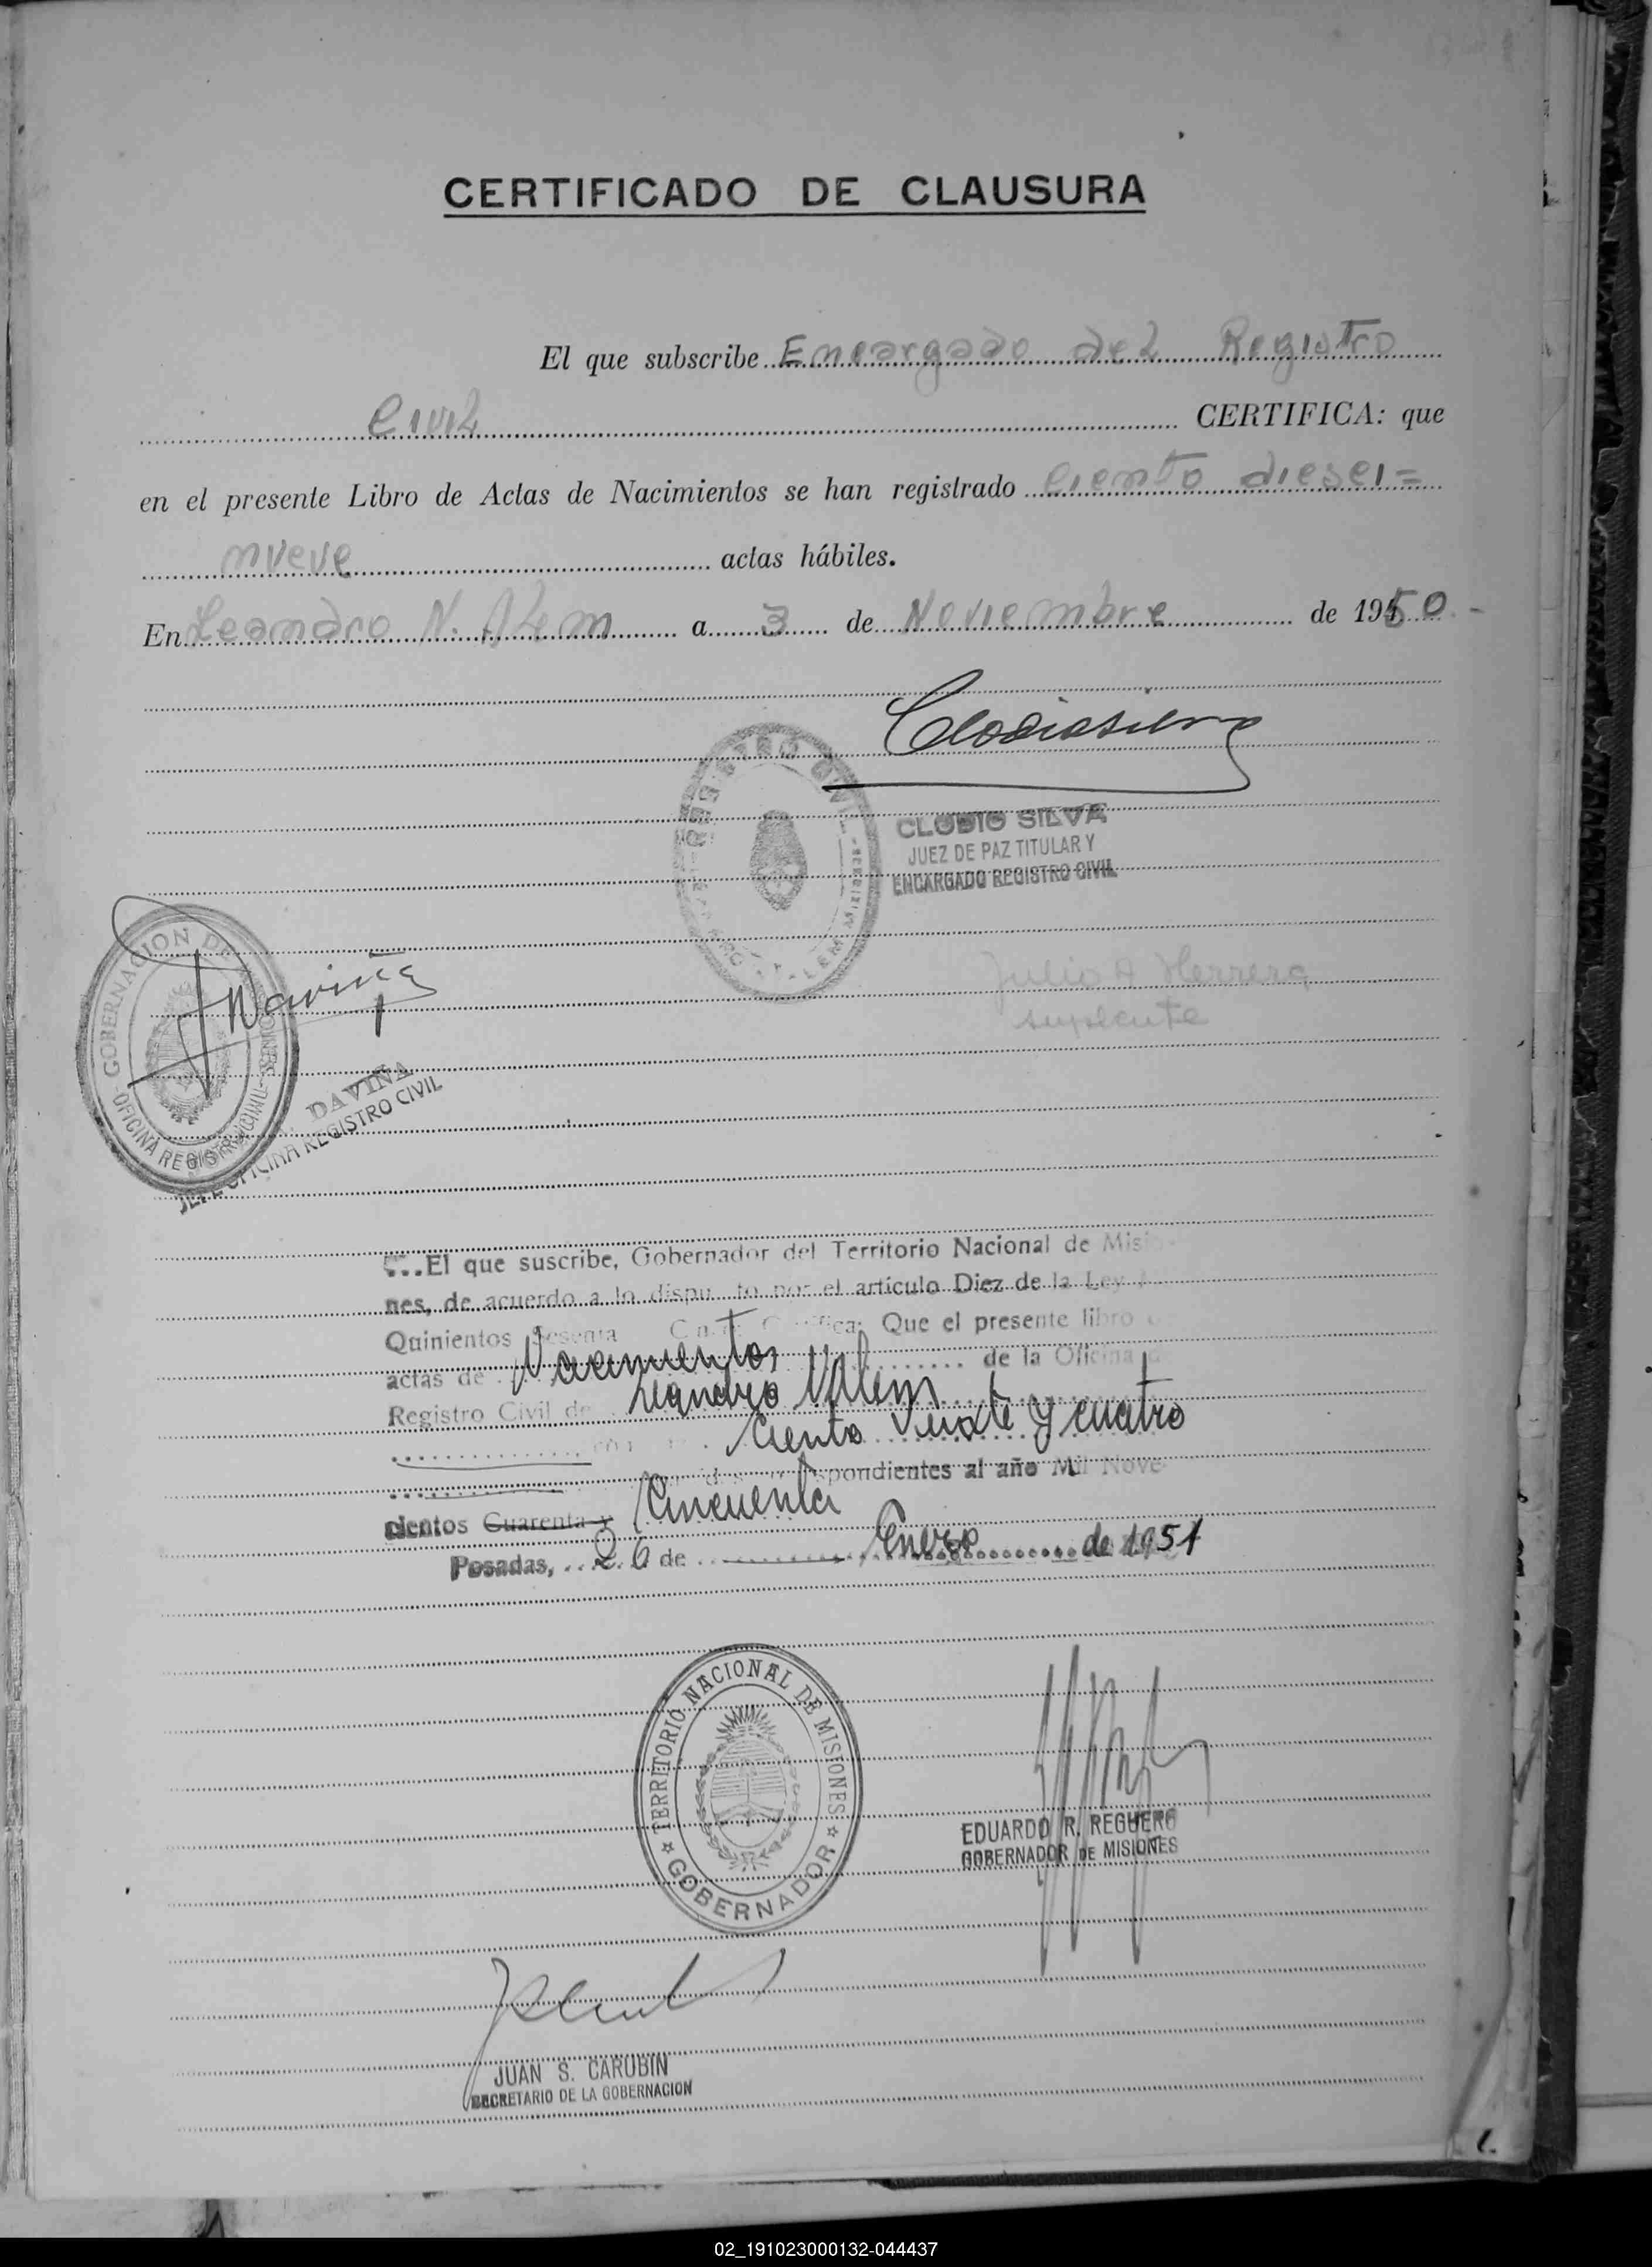 CERTIFICADO DE CLAUSURA
El que subscribe Encargado del Registro
Civil CERTIFICA: que
en el presente Libro de Actas de Nacimientos se han registrado ciento diesei=
nueve actas hábiles.
En Leandro N. Alem a 3 de Noviembre de 1950.-
Clodio Silva
CLODIO SILVA
JUEZ DE PAZ TITULAR Y
ENCARGADO REGISTRO CIVIL
Julio A Herrera
suplente
GOBERNACION DE MISIONES
OFICINA REGISTRO CIVIL
Daviña
DAVIÑA
JEFE OFICINA REGISTRO CIVIL
El que suscribe, Gobernador del Territorio Nacional de Misio
nes, de acuerdo a lo dispuesto por el artículo Diez de la Ley
Quinientos Sesenta Certifica: Que el presente libro
actas de Nacimientos de la Oficina
Registro Civil de Leandro N Alem
Ciento veinte y cuatro
correspondientes al año Mil Nove
cientos Cuarenta y Cincuenta
Posadas, 26 de Enero de 1951
TERRITORIO NACIONAL DE MISIONES
GOBERNADOR
EDUARDO R. REGUERO
GOBERNADOR DE MISIONES
JUAN S. CARUBIN
SECRETARIO DE LA GOBERNACION
02_191023000132-044437